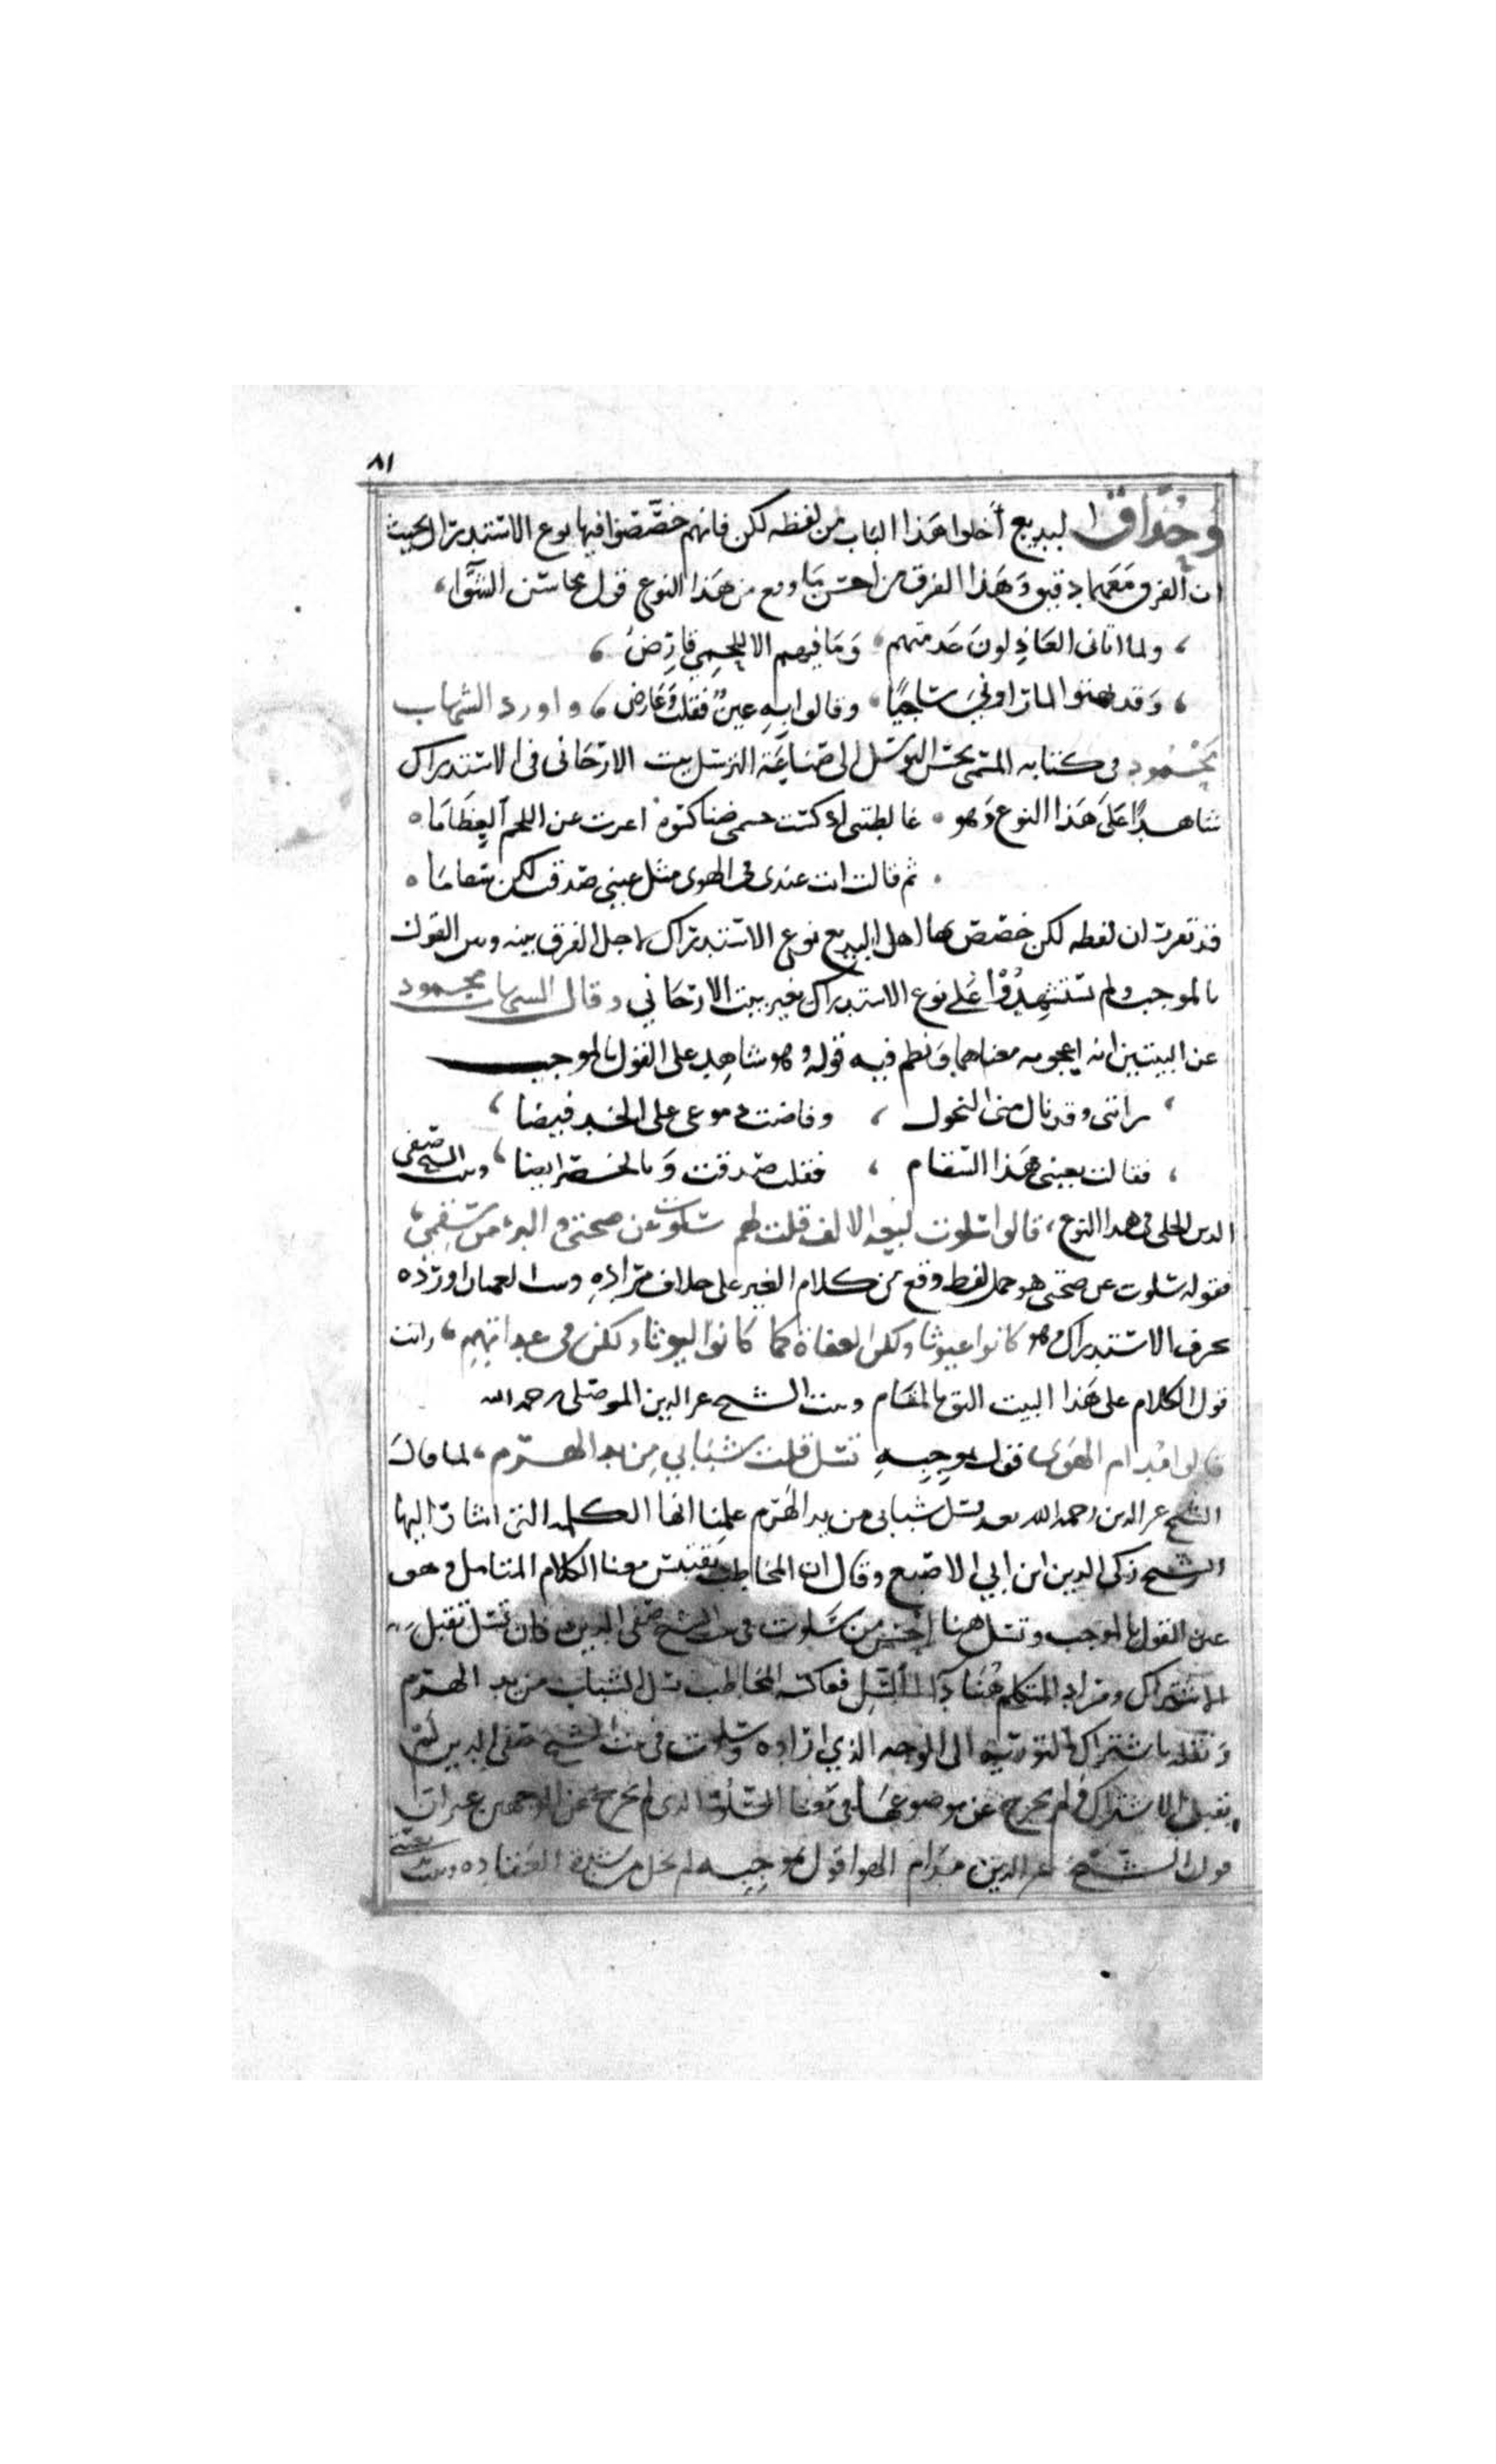 ٨١
وحذاق البديع أخلوا هذا الباب من لفظه لكن فانهم خصّصوا فيها نوع الاستدراك بحيث
ان الفرق معهما دقيق وهذا الفرق من احسن ما وقع من هذا النوع قول محاسن الشوّا،
، ولما اتاني العاذلون عدمتهم ، وما فيهم الا للحمي قارض ،
، وقد بهتوا لما راوني شاحبًا ، وقالوا به عين فقلت وعارض ، واورد الشهاب
محمود في كتابه المسمى بحسن التوسل الى صناعة الترسل بيت الارجاني في الاستدراك
شاهدًا على هذا النوع وهو ، غالطتني اذ كست جسمي ضنا كسوة اعرت عن اللحم العظاما ،
، ثم قالت انت عندي في الهوى مثل عيني صدقت لكن سقاما ،
قد تقررت ان لفظه لكن خصّص بها اهل البديع نوع الاستدراك لاجل الفرق بينه وبين القول
بالموجب ولم تستشهدوا على نوع الاستدراك بغير بيت الارجاني وقال الشهاب محمود
عن البيتين انه اعجبه معناهما ونظم فيه قوله وهو شاهد على القول بالموجب
، راتني وقد نال مني النحول ، وفاضت دموعي على الخد فيضا ،
، فقالت بعيني هذا السقام ، فقلت صدقت وبالخصر ايضا ، وبيت الشيخ صفي
الدين الحلي في هذا النوع ، قالوا سلوت لبعد الالف قلت لهم سلوت عن صحتي والبرء من سقمي ،
فقوله سلوت عن صحتي هو حمل لفظ وقع من كلام الغير على خلاف مراده وبيت العميان اوردَه
بحرف الاستدراك وهو كانوا غيوثا ولكن للعفاة كما كانوا ليوثا ولكن في عداتهم ، وانت
قول الكلام على هذا البيت اليق بالمقام وبيت الشيخ عز الدين الموصلي رحمه الله
قالوا مدام الهوى قول بموجبه تسل قلت شبابي من يد الهرم ، لما قال
الشيخ عز الدين رحمه الله بعد تسل شبابي من يد الهرم علمنا انها الكلمه التي اشار اليها
الشيخ زكي الدين ابن ابي الاصبع وقال ان المخاطب يقتبس معنا الكلام المتامل وهو
عين القول بالموجب وتسل هنا احسن من سلوت في بيت الشيخ صفي الدين فان تسل تقبل
الاشتراك ومراد المتكلم هنا بها التسل فعاكسه المخاطب تسل الشباب من يد الهرم
ونقله باشتراك التورية الى الوجه الذي اراده وسلوت في بيت الشيخ صفي الدين لم
تقبل الاشتراك ولم تخرج عن موضوعها في معنا السلو الذي لم يخرج عن الوجهين غير ان
قول الشيخ عز الدين مدام الهوا قول بموجبه لم يخل من شدة العقاده وبيت